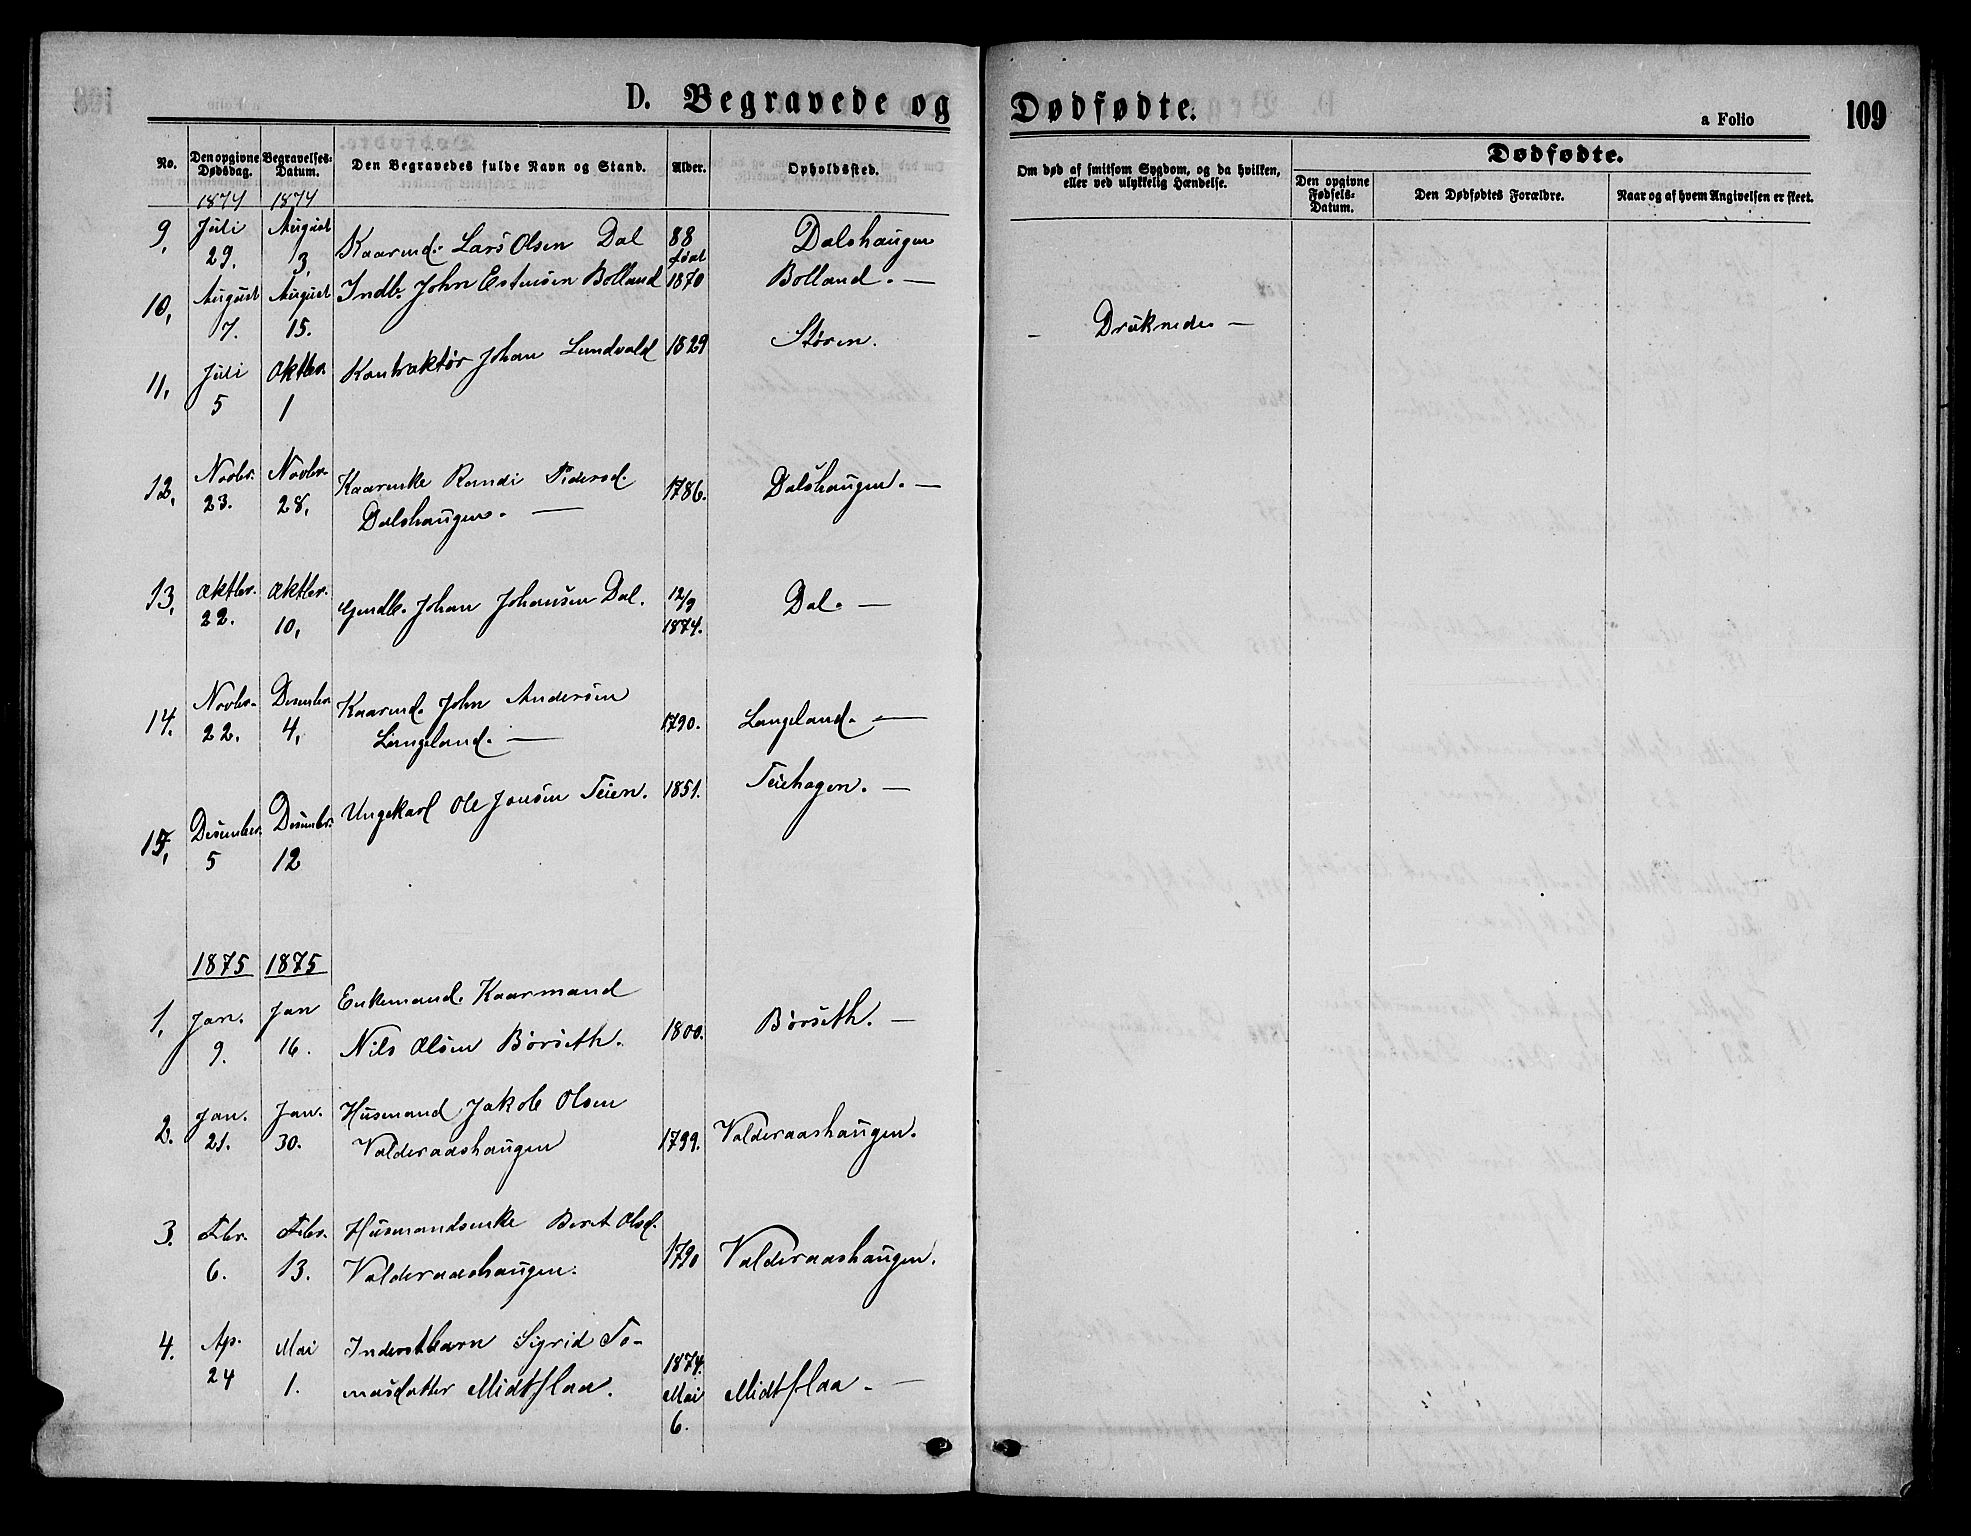 D. Begravede og Dødfødte.
a Folio 109
No. Den opgivne Dødsdag. Begravelses-Datum. Den Begravedes fulde Navn og Stand. Alder. Opholdssted. Om død af smitsom Sygdom, og da hvilken, eller ved ulykkelig Hændelse. Dødfødte.
Den opgivne Fødsels-Datum. Den Dødfødtes Forældre. Naar og af hvem Angivelsen er skeet.
1874 1874
9, Juli August Kaarmd. Lars Olsen Dal 88 Dalshaugen
29. 3,
10, August August Indb. John Estensen Bolland 1870 Bolland. —
7. 15. — Druknede —
11, Juli Oktbr. Kontraktør Johan Lundvald 1829 Støren.
5 1
12, Novbr. Novbr. Kaarenke Randi Pedersd. 1786. Dalshaugen. —
23. 28, Dalshaugen. —
13, Oktbr. Oktbr. Gmdb. Johan Johansen Dal. 12/9 Dal. —
22. 10, 1874.
14. Novbr. Desember Kaarmd. John Andersen 1790. Langeland. —
22. 4, Langeland. —
15, Desember Desembr. Ungekarl Ole Jonsen Teien. 1851. Teiehagen. —
5 12
1875 1875
1, Jan. Jan Enkemand. Kaarmand
9. 16. Nils Olsen Børseth. 1800. Børseth. —
2. Jan. Jan. Husmand Jakob Olsen
21. 30. Valderaashaugen 1799. Valderaashaugen.
3. Febr. Febr. Husmandsenke Beret Olsd.
6. 13. Valderaashaugen. 1790 Valderaashaugen.
4. Ap. Mai Inderstbarn Sigrid To-
24 1. masdatter Midtflaa. 1874. Midtflaa. —
Mai
6.